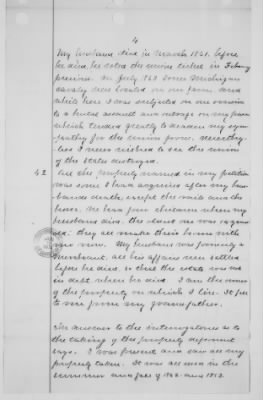 4
My husband died in March 1861. before
he died, he voted the union ticket in Feb'ry
previous. In July 1863 some Michigan
cavalry were located on our farm, and
while here I was subjected on one occasion
to a brutal assault and outrage on my person
which tended greatly to deaden my sym-
pathy for the union from. Neverthe-
less I never wished to see the union
of the States destroyed.
42 All the property named in my petition
was some I have acquired after my hus-
bands death, except the rails and the
house. We have four children when my
husband died. the eldest one was 12 years
old: they all make their home with
me now. My husband was formerly a
Merchant, all his affairs were settled
before he died, so that the estate was not
in debt when he died. I am the owner
of the property on which I live. It fell
to me from my grandfather.
In answer to the interrogatories as to
the taking of the property deponent
says. I was present and saw all my
property taken. It was all seen in the
summer and fall of 1862 and 1863.